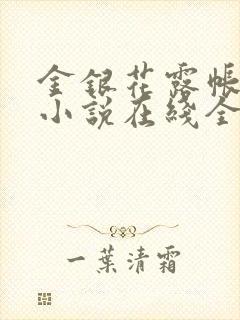 金銀花露帳
小説在綫全
一葉清霜